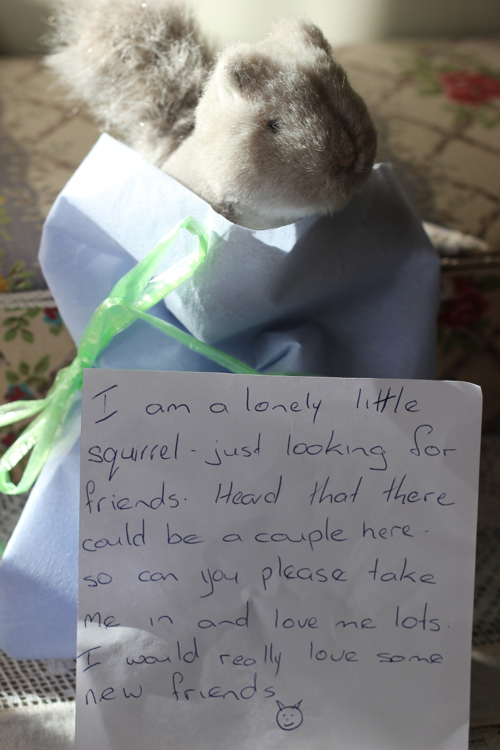 I am a lonely little
squirrel - just looking for
friends. Heard that there
could be a couple here -
so can you please take
me in and love me lots.
I would really love some
new friends